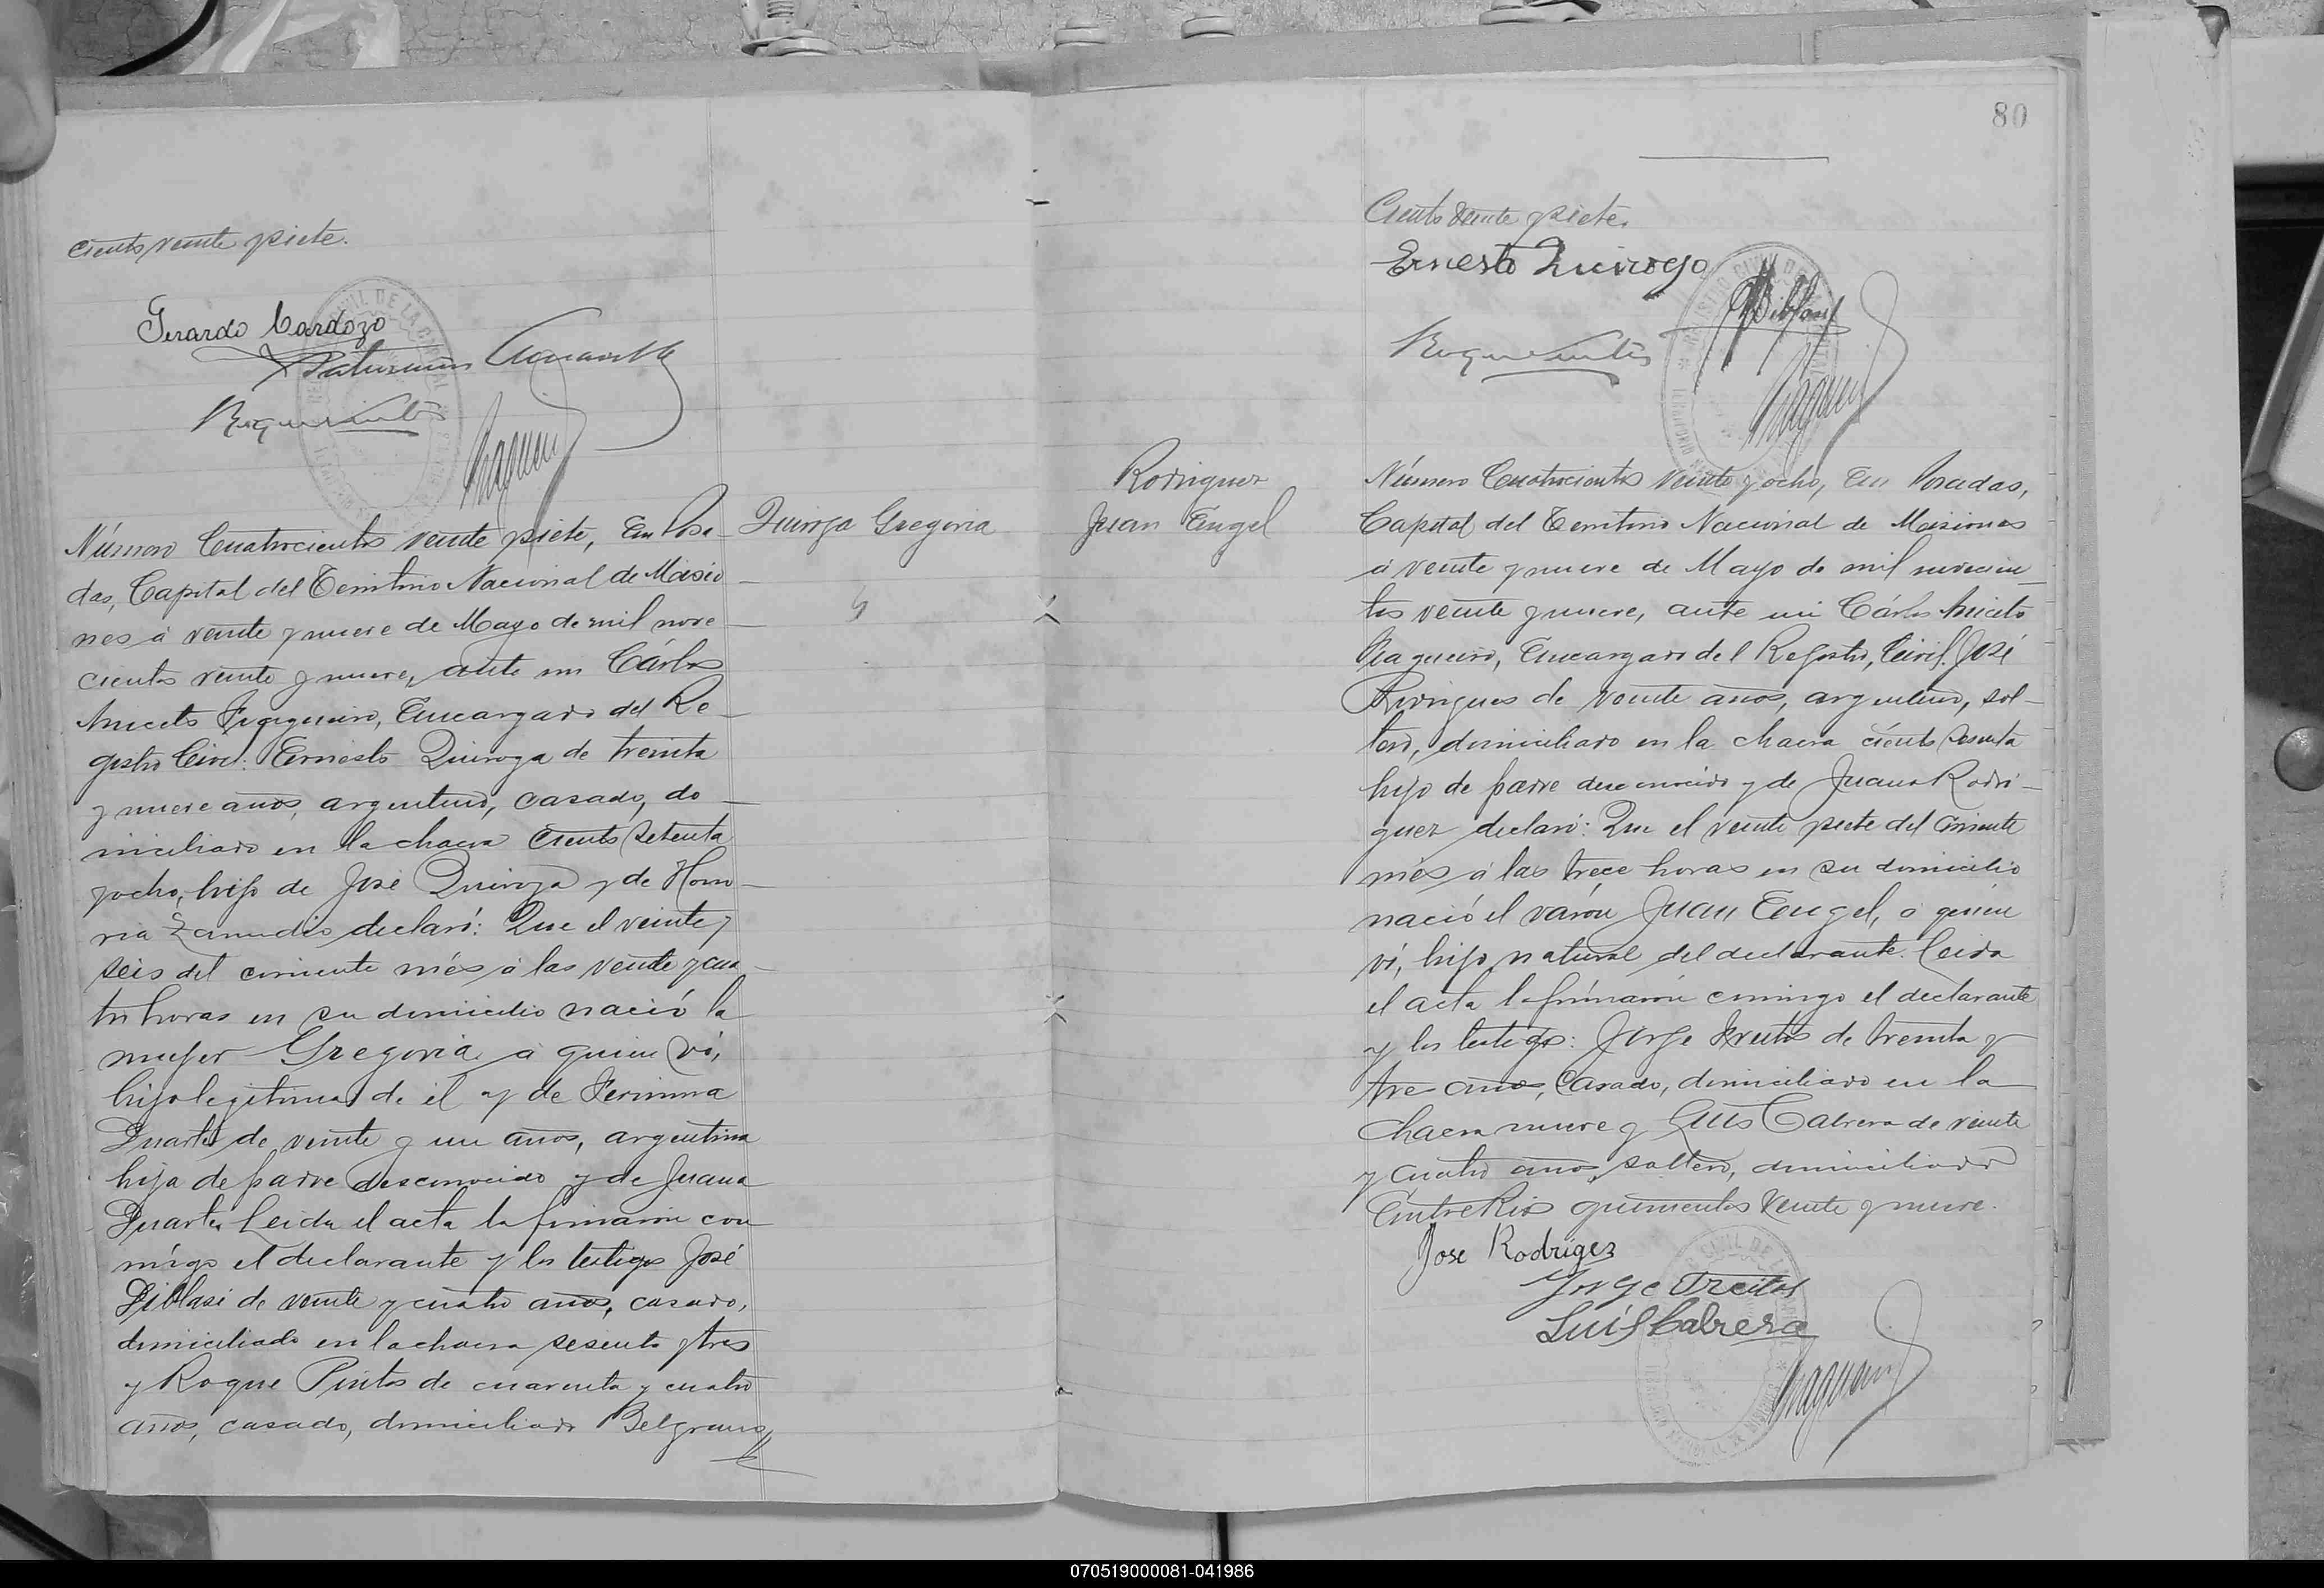 ciento veinte y siete.
Gerardo Cardozo
Roque Pintos
Número Cuatrocientos veinte y siete, En Posa-
das, Capital del Territorio Nacional de Misio-
nes á veinte y nueve de Mayo de mil nove-
cientos veinte y nueve, ante mi Cárlos
Aniceto Fragueiro, Encargado del Re-
gistro Civil: Ernesto Quiroga de treinta
y nueve años, argentino, casado, do-
miciliado en la chacra Ciento setenta
y ocho, hijo de José Quiroga y de Hono-
ria Zamudio declaró: Que el veinte y
seis del corriente més á las veinte y cua-
tro horas en su domicilio nació la
mujer Gregoria á quien ví,
hija legitima de él y de Fermina
Duarte de veinte y un años, argentina
hija de padre desconocido y de Juana
Duarte. Leida el acta la firmaron con-
migo el declarante y los testigos José
Diblasi de veinte y cuatro años, casado,
domiciliado en la chacra sesenta y tres
y Roque Pintos de cuarenta y cuatro
años, casado, domiciliado Belgrano
Quiroga Gregoria
80
Ciento veinte y siete.
Ernesto Quiroga
J Diblasi
Roque Pintos
Fragueiro
Rodriguez
Juan Angel
Número Cuatrocientos veinte y ocho, En Posadas,
Capital del Territorio Nacional de Misiones
á veinte y nueve de Mayo de mil novecien-
tos veinte y nueve, ante mi Cárlos Aniceto
Fragueiro, Encargado del Registro, Civil: José
Rodrigues de veinte años, argentino, sol-
tero, domiciliado en la chacra ciento sesenta
hijo de padre desconocido y de Juana Rodri-
guez declaró: Que el veinte y siete del corriente
més á las trece horas en su domicilio
nació el varón Juan Angel, á quien
ví, hijo natural del declarante. Leida
el acta la firmaron conmigo el declarante
y los testigos: Jorge Freitas de treinta y
tres años, casado, domiciliado en la
chacra nueve y Luis Cabrera de veinte
y cuatro años, soltero, domiciliado
Entre Rios quinientos veinte y nueve.
Jose Rodrigez
Jorge Freitas
Luis Cabrera
Fragueiro
070519000081-041986